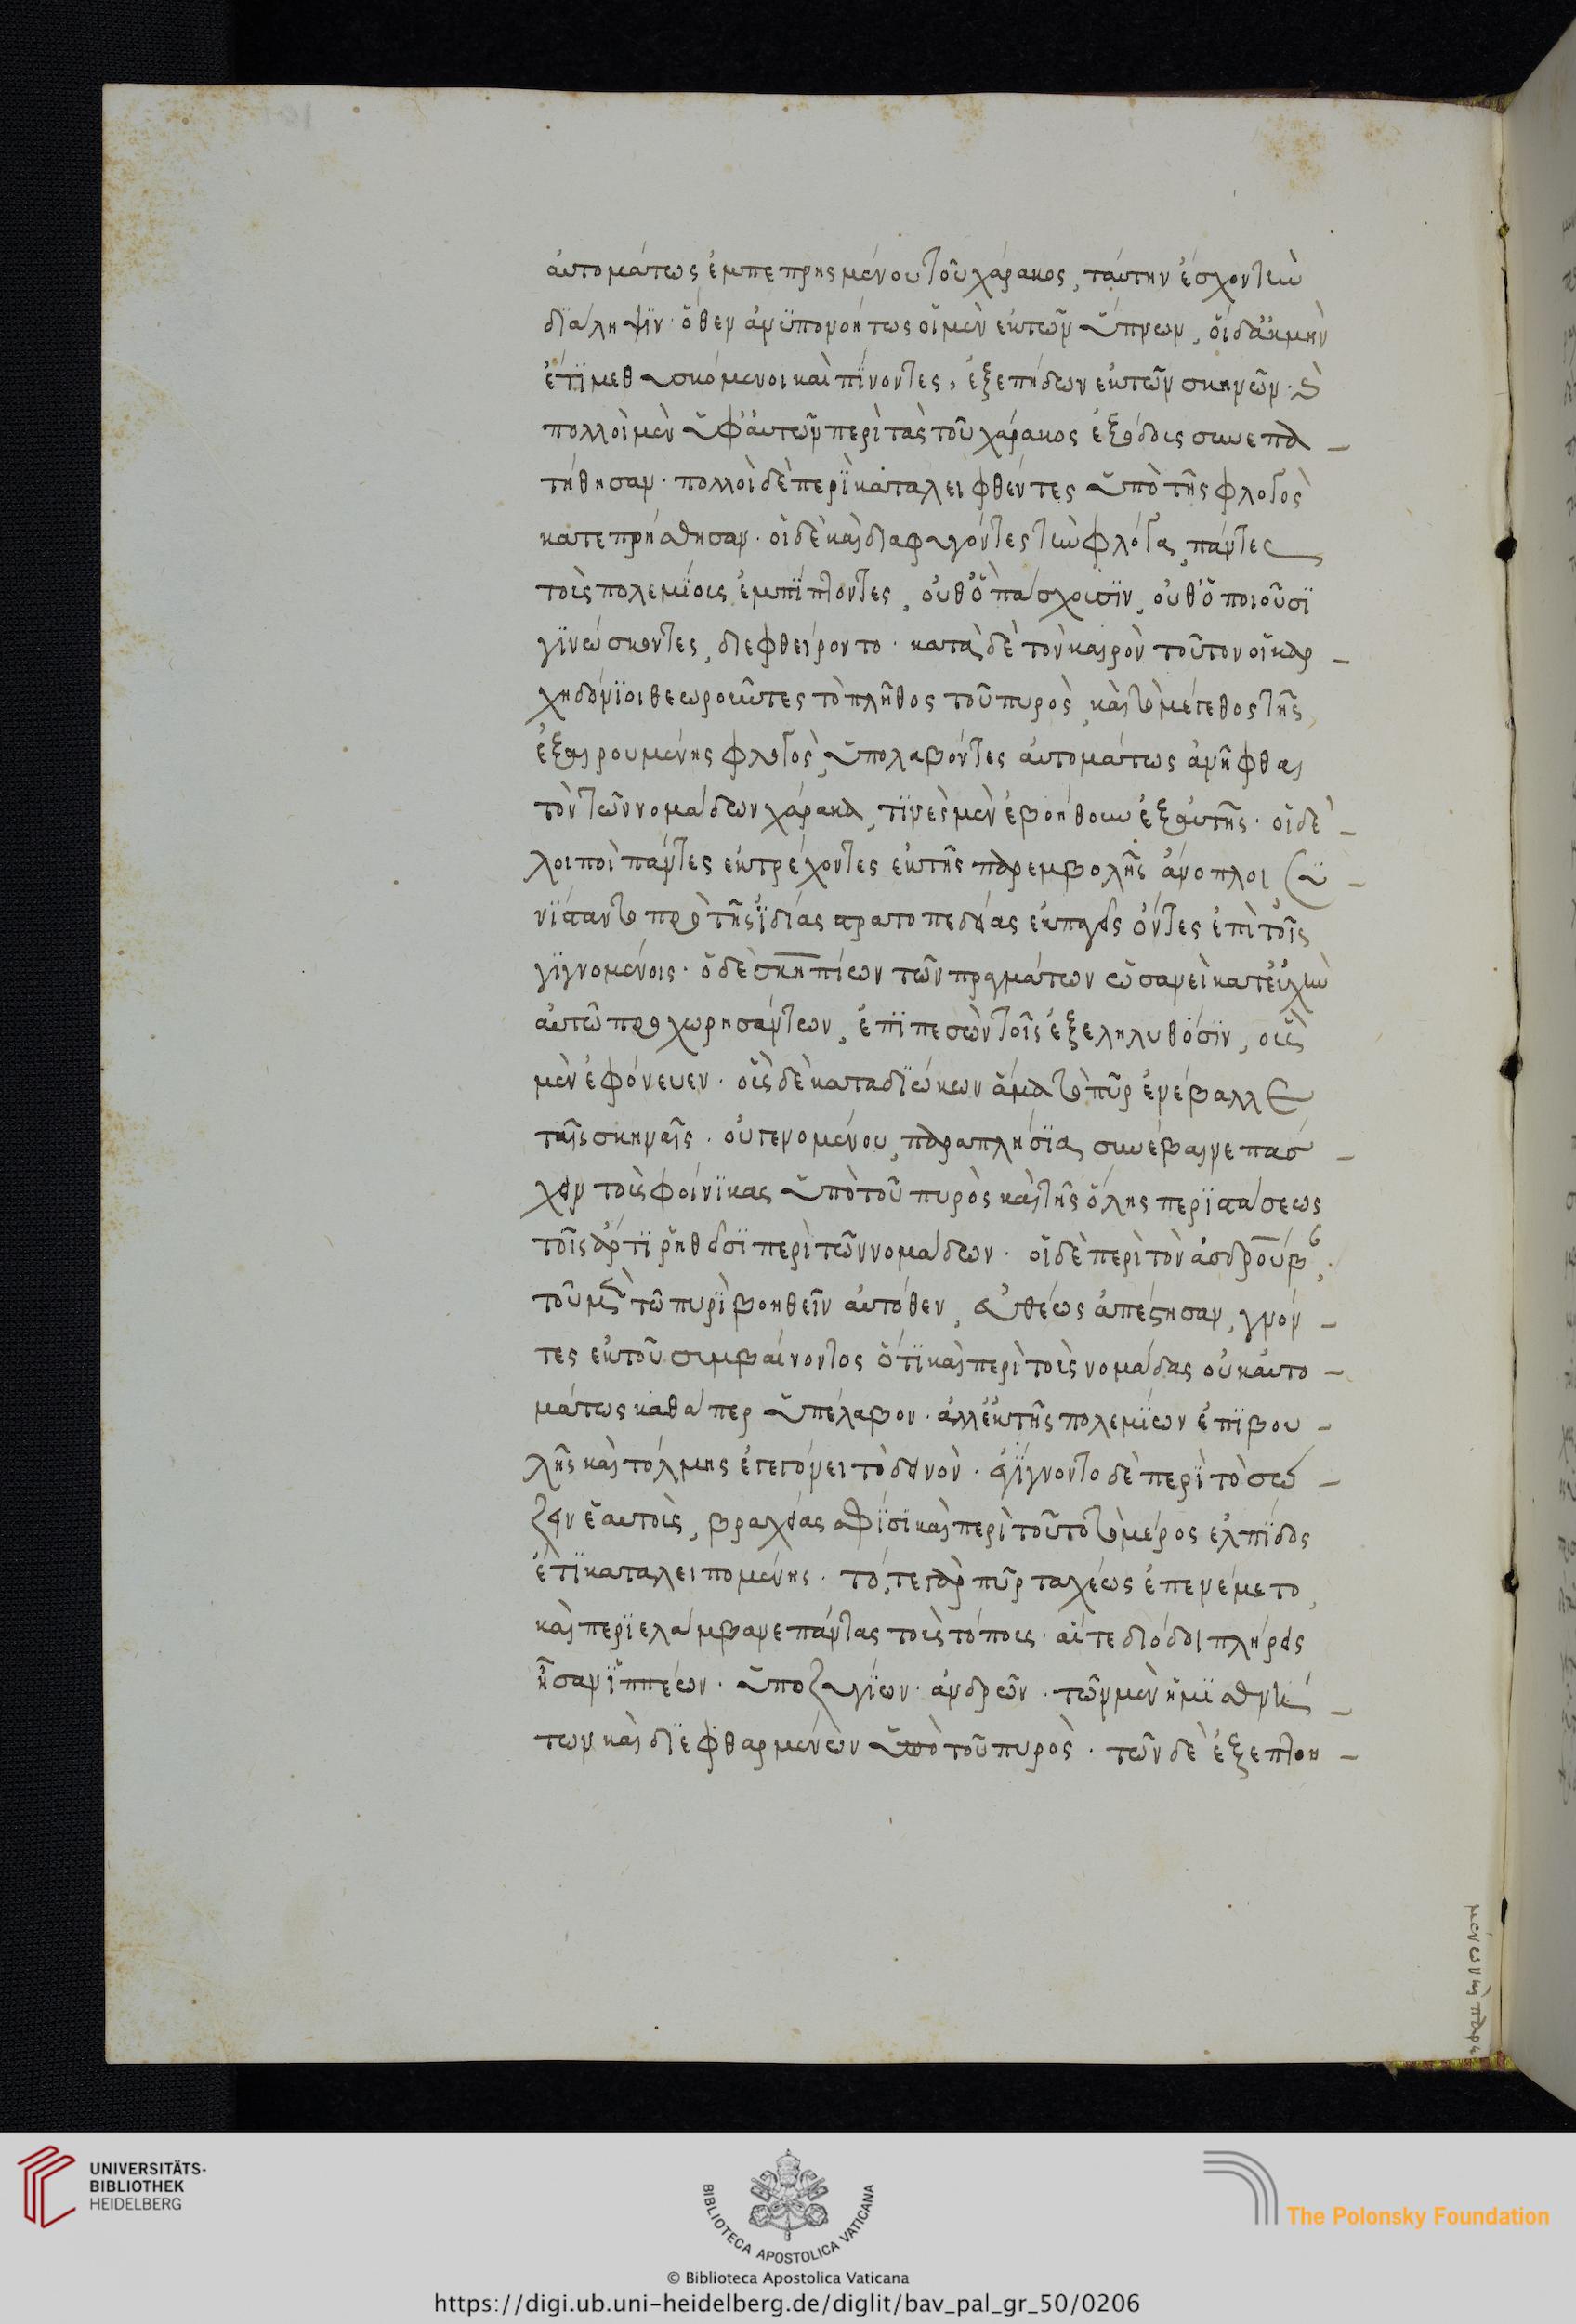 αὐτομάτως ἐμπεπρησμένου τοῦ χάρακος, ταύτην ἔσχον τὴν
διάληψϊν· ὅθεν ἀνϋπονοήτως οἱ μὲν ἐκ τῶν ὕπνων, οἱ δ' ἀκμὴν
ἔτϊ μεθυσκόμενοι καὶ πίνοντες, ἐξεπήδων ἐκ τῶν σκηνῶν· καὶ
πολλοὶ μὲν ὑφ' αὑτῶν περὶ τὰς τοῦ χάρακος ἐξόδους συνεπα-
τήθησαν· πολλοὶ δὲ περϊκαταλειφθέντες ὑπὸ τῆς φλογὸς
κατεπρήσθησαν· οἱ δὲ καὶ διαφυγόντες τὴν φλόγα, πάντες
τοῖς πολεμίοις ἐμπίπτοντες, οὐθ' ὃ πάσχουσϊν, οὐθ' ὃ ποιοῦσϊ
γϊνώσκοντες, διεφθείροντο· κατὰ δὲ τὸν καιρὸν τοῦτον οἱ καρ-
χηδόνϊοι θεωροῦντες τὸ πλῆθος τοῦ πυρὸς, καὶ τὸ μέγεθος τῆς
ἐξαιρουμένης φλογὸς, ὑπολαβόντες αὐτομάτως ἀνῆφθαι
τὸν τῶν νομάδων χάρακα, τϊνὲς μὲν ἐβοήθουν ἐξαυτῆς· οἱ δὲ-
λοιποὶ πάντες ἐκτρέχοντες ἐκ τῆς παρεμβολῆς ἄνοπλοι συ-
νΐσταντο πρὸ τῆς ἰδίας στρατοπεδείας ἐκπλαγεῖς ὄντες ἐπὶ τοῖς
γϊγνομένοις· ὁ δὲ σκηπίων τῶν πραγμάτων ὡσανεὶ κατ' εὐχὴν
αὐτῶ προχωρησάντων, ἐπϊπεσὼν τοῖς ἐξεληλυθόσϊν, οὓς
μὲν ἐφόνευεν· οὓς δὲ καταδϊώκων ἅμα τὸ πῦρ ἐνέβαλλε
ταῖς σκηναῖς· οὗ γενομένου, παραπλήσϊα συνέβαινε πάσ-
χειν τοὺς φοίνϊκας ὑπὸ τοῦ πυρὸς καὶ τῆς ὅλης περϊστάσεως
τοῖς ἄρτϊ ῥηθεῖσϊ περὶ τῶν νομάδων· οἱ δὲ περὶ τὸν ἀσδρούβαν,
τοῦ μὲν τῶ πυρϊ βοηθεῖν αὐτόθεν, εὐθέως ἀπέστησαν, γνόν-
τες ἐκ τοῦ συμβαίνοντος ὅτϊ καὶ περὶ τοὺς νομάδας οὐκ αὐτο-
μάτως καθάπερ ὑπέλαβον· ἀλλ' ἐκ τῆς πολεμίων ἐπϊβου-
λῆς καὶ τόλμης ἐγεγόνει τὸ δεινὸν· ἐγΐγνοντο δὲ περὶ τὸ σώ-
ζειν ἑαυτοὺς, βραχείας σφίσϊ καὶ περὶ τοῦτο τὸ μέρος ἐλπίδος
ἔτϊ καταλειπομένης· τό, τε γὰρ πῦρ ταχέως ἐπενέμετο,
καὶ περϊελάμβανε πάντας τοὺς τόπους· αἵ τε δίοδοι πλήρεις
ἦσαν ἵππέων· ὑποζυγίων· ἀνδρῶν· τῶν μὲν ἡμϊθνή-
των καὶ δϊεφθαρμένων ὑπὸ τοῦ πυρὸς· τῶν δὲ ἐξεπτοη-
μένων καὶ παρε
UNIVERSITÄTS-
BIBLIOTHEK
HEIDELBERG
BIBLIOTECA APOSTOLICA VATICANA
The Polonsky Foundation
© Biblioteca Apostolica Vaticana
https://digi.ub.uni-heidelberg.de/diglit/bav_pal_gr_50/0206